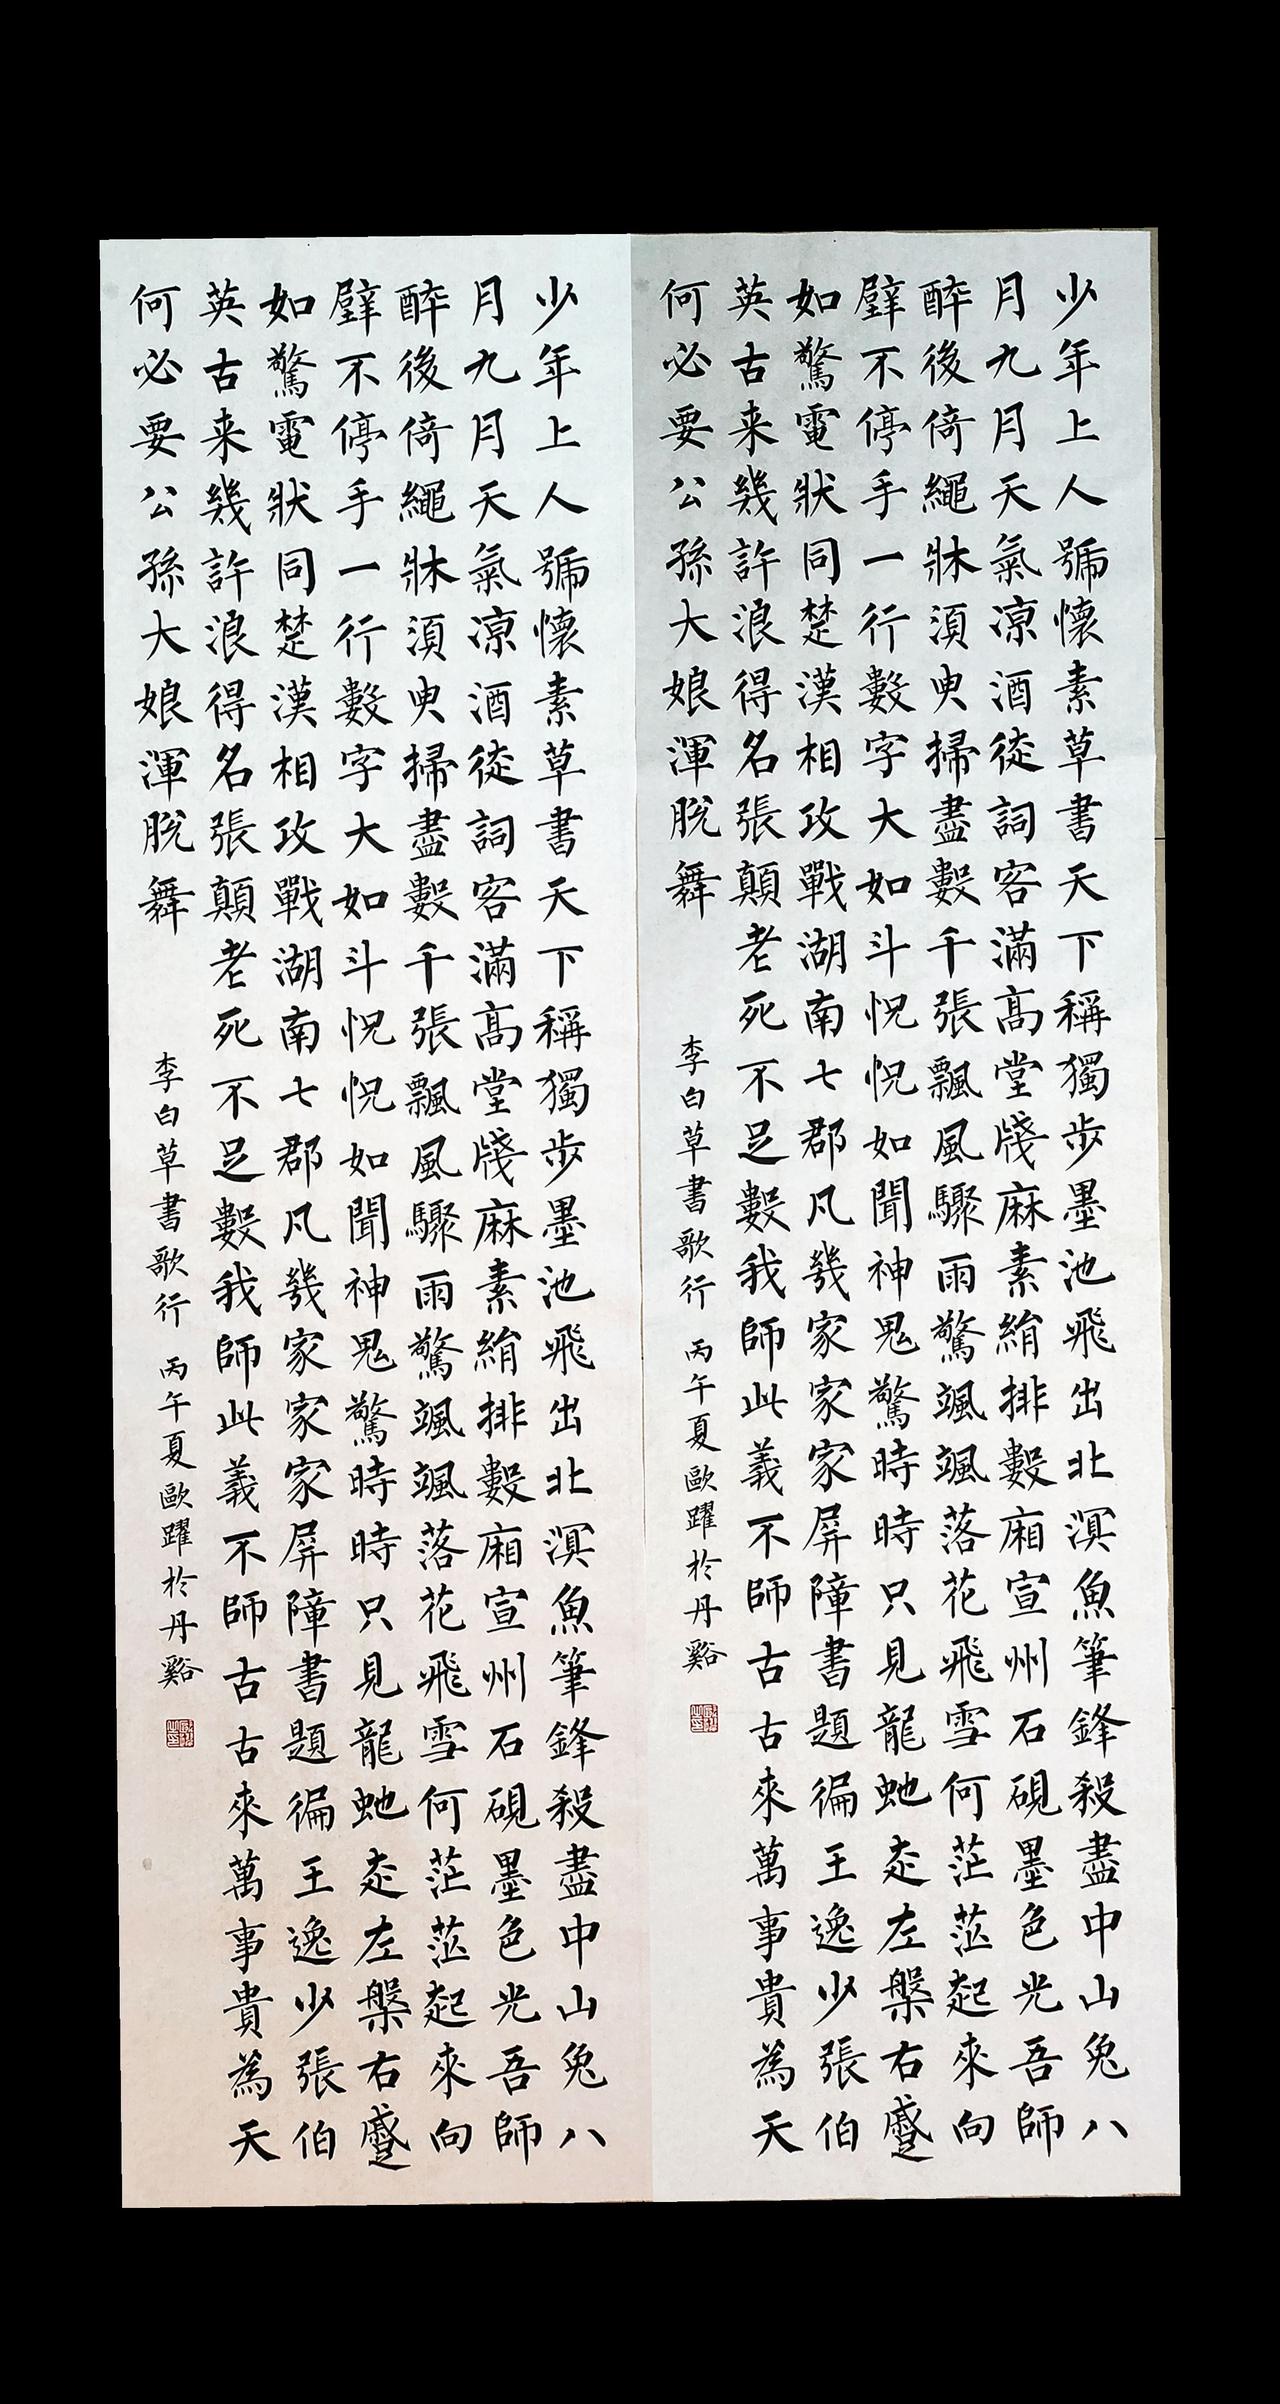 少年上人號懷素草書天下稱獨步墨池飛出北溟魚筆鋒殺盡中山兔八
月九月天氣凉酒徒詞客滿髙堂牋麻素絹排數廂宣州石硯墨色光吾師
醉後倚繩牀須臾掃盡數千張飄風驟雨驚颯颯落花飛雪何茫茫起來向
壁不停手一行數字大如斗怳怳如聞神鬼驚時時只見龍虵走左槃右蹙
如驚電狀同楚漢相攻戰湖南七郡凡幾家家家屏障書題徧王逸少張伯
英古来幾許浪得名張顛老死不足數我師此義不師古古來萬事貴為天
何必要公孫大娘渾脫舞
李白草書歌行 丙午夏歐躍於丹谿
少年上人號懷素草書天下稱獨步墨池飛出北溟魚筆鋒殺盡中山兔八
月九月天氣凉酒徒詞客滿髙堂牋麻素絹排數廂宣州石硯墨色光吾師
醉後倚繩牀須臾掃盡數千張飄風驟雨驚颯颯落花飛雪何茫茫起來向
壁不停手一行數字大如斗怳怳如聞神鬼驚時時只見龍虵走左槃右蹙
如驚電狀同楚漢相攻戰湖南七郡凡幾家家家屏障書題徧王逸少張伯
英古来幾許浪得名張顛老死不足數我師此義不師古古來萬事貴為天
何必要公孫大娘渾脫舞
李白草書歌行 丙午夏歐躍於丹谿